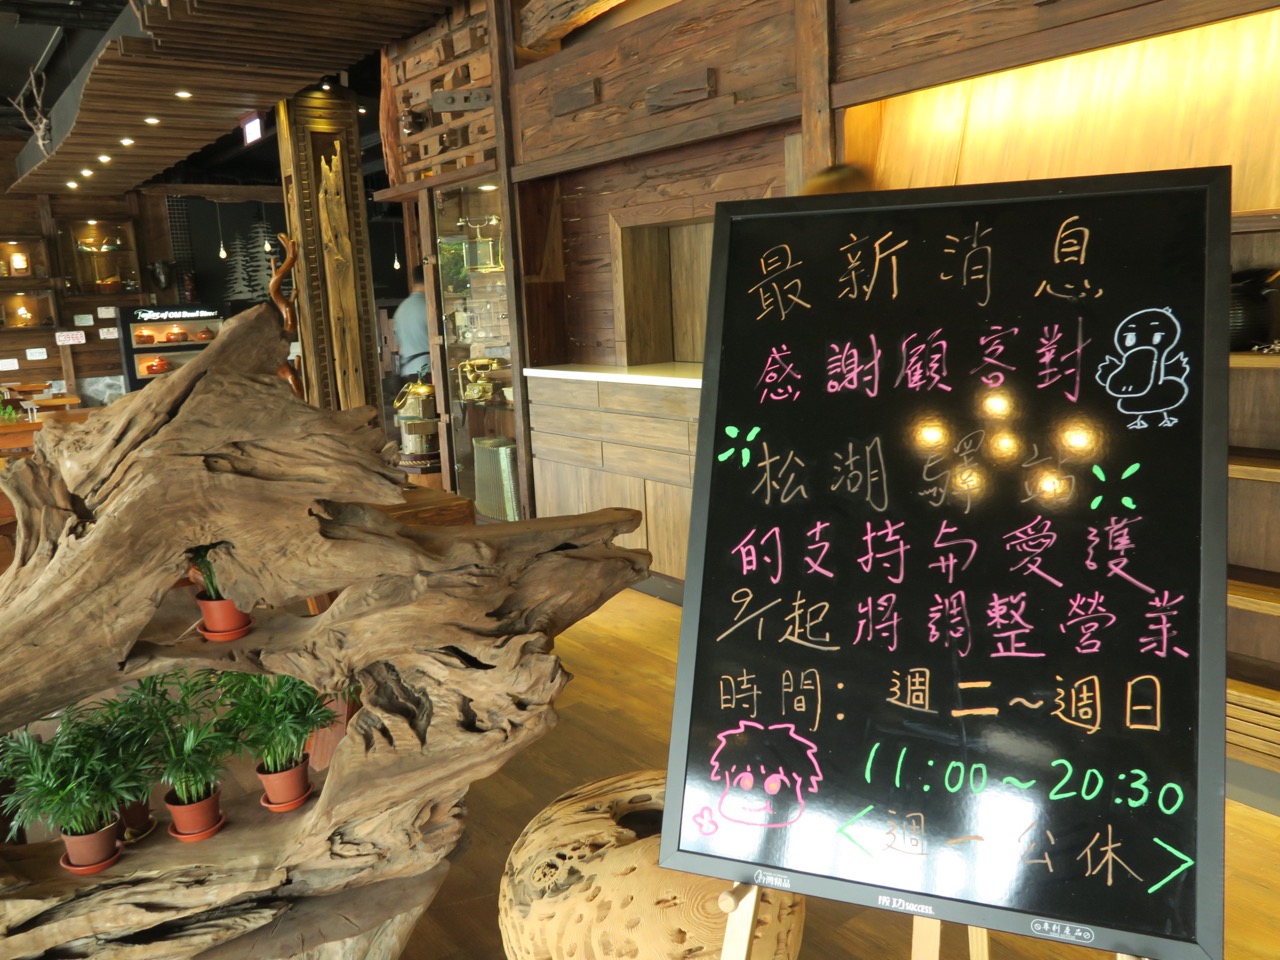 最新消息
感謝顧客對
松湖驛站
的支持与愛護
9/1起將調整營業
時間：週二～週日
11:00～20:30
<週一公休>
台灣精品
成功SUCCESS
專利產品